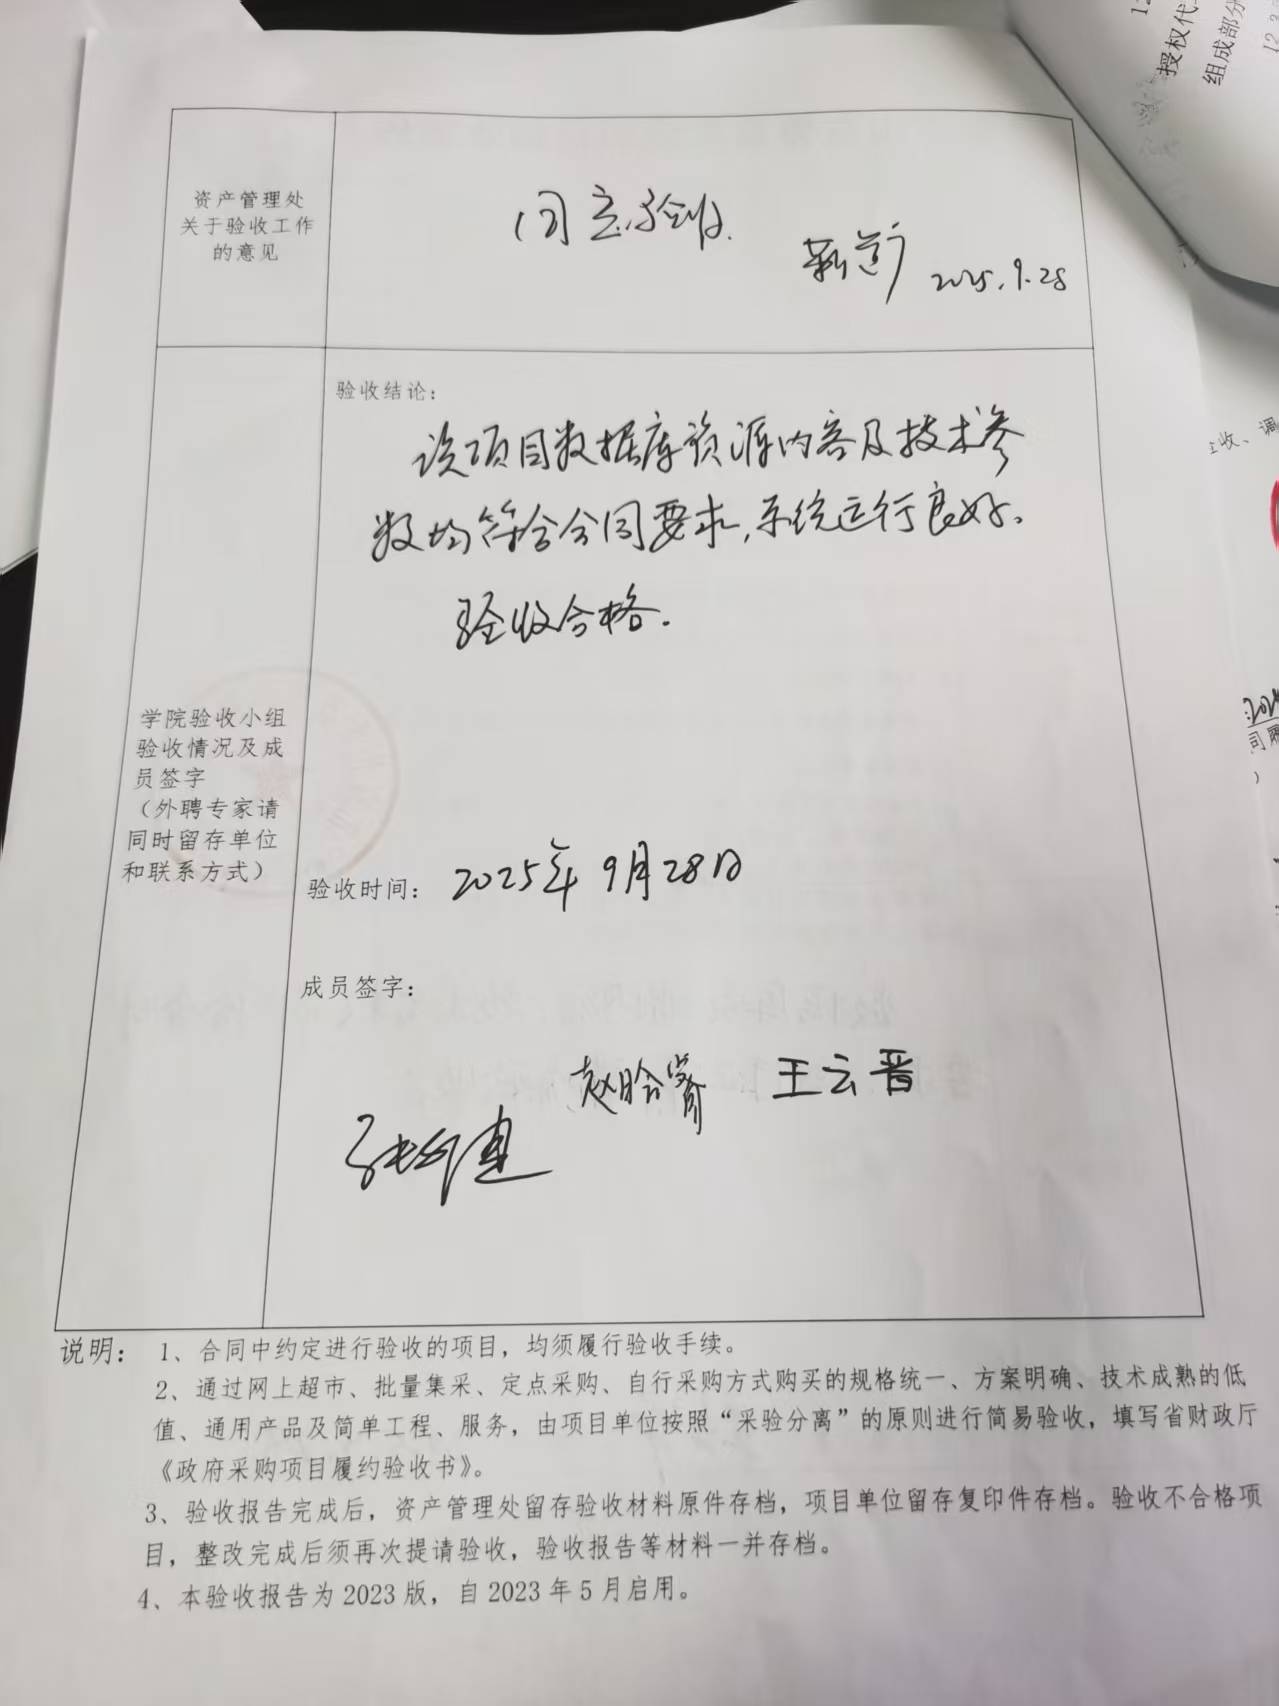 资产管理处
关于验收工作
的意见
同意验收.
2025.9.28
验收结论：
该项目数据库资源内容及技术参
数均符合合同要求，系统运行良好。
验收合格.
学院验收小组
验收情况及成
员签字
（外聘专家请
同时留存单位
和联系方式）
验收时间： 2025年9月28日
成员签字：
赵晗睿 王云晋
说明： 1、合同中约定进行验收的项目，均须履行验收手续。
2、通过网上超市、批量集采、定点采购、自行采购方式购买的规格统一、方案明确、技术成熟的低
值、通用产品及简单工程、服务，由项目单位按照“采验分离”的原则进行简易验收，填写省财政厅
《政府采购项目履约验收书》。
3、验收报告完成后，资产管理处留存验收材料原件存档，项目单位留存复印件存档。验收不合格项
目，整改完成后须再次提请验收，验收报告等材料一并存档。
4、本验收报告为 2023 版，自 2023 年 5 月启用。
授权代
组成部分
收、调